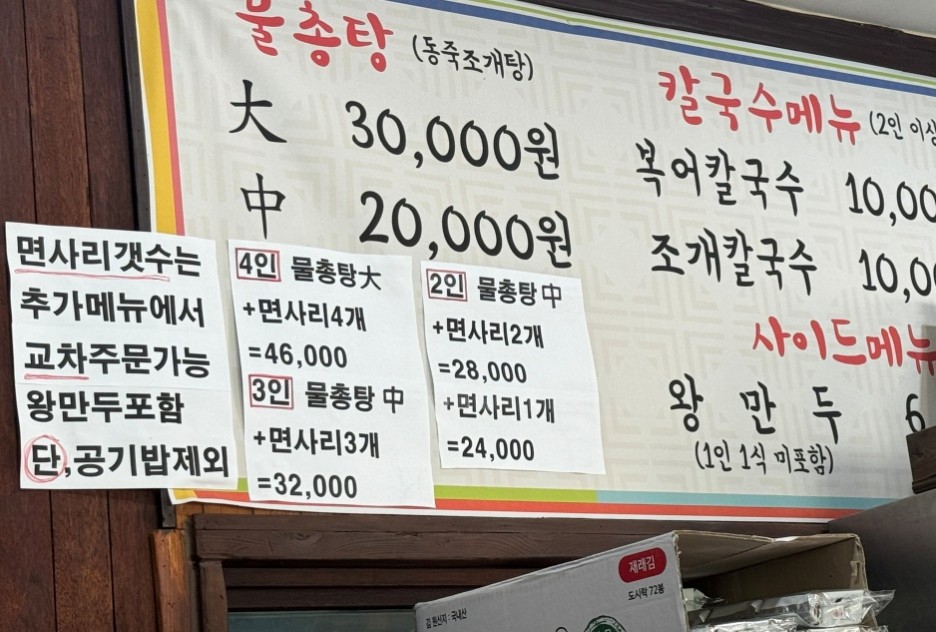 물총탕 (동죽조개탕)
大 30,000원
中 20,000원
칼국수메뉴 (2인 이상
복어칼국수 10,00
조개칼국수 10,0
사이드메뉴
왕만두 6
(1인 1식 미포함)
면사리갯수는
추가메뉴에서
교차주문가능
왕만두포함
단,공기밥제외
4인 물총탕大
+면사리4개
=46,000
3인 물총탕 中
+면사리3개
=32,000
2인 물총탕 中
+면사리2개
=28,000
+면사리1개
=24,000
재래김
도시락 72봉
김 원산지 : 국내산